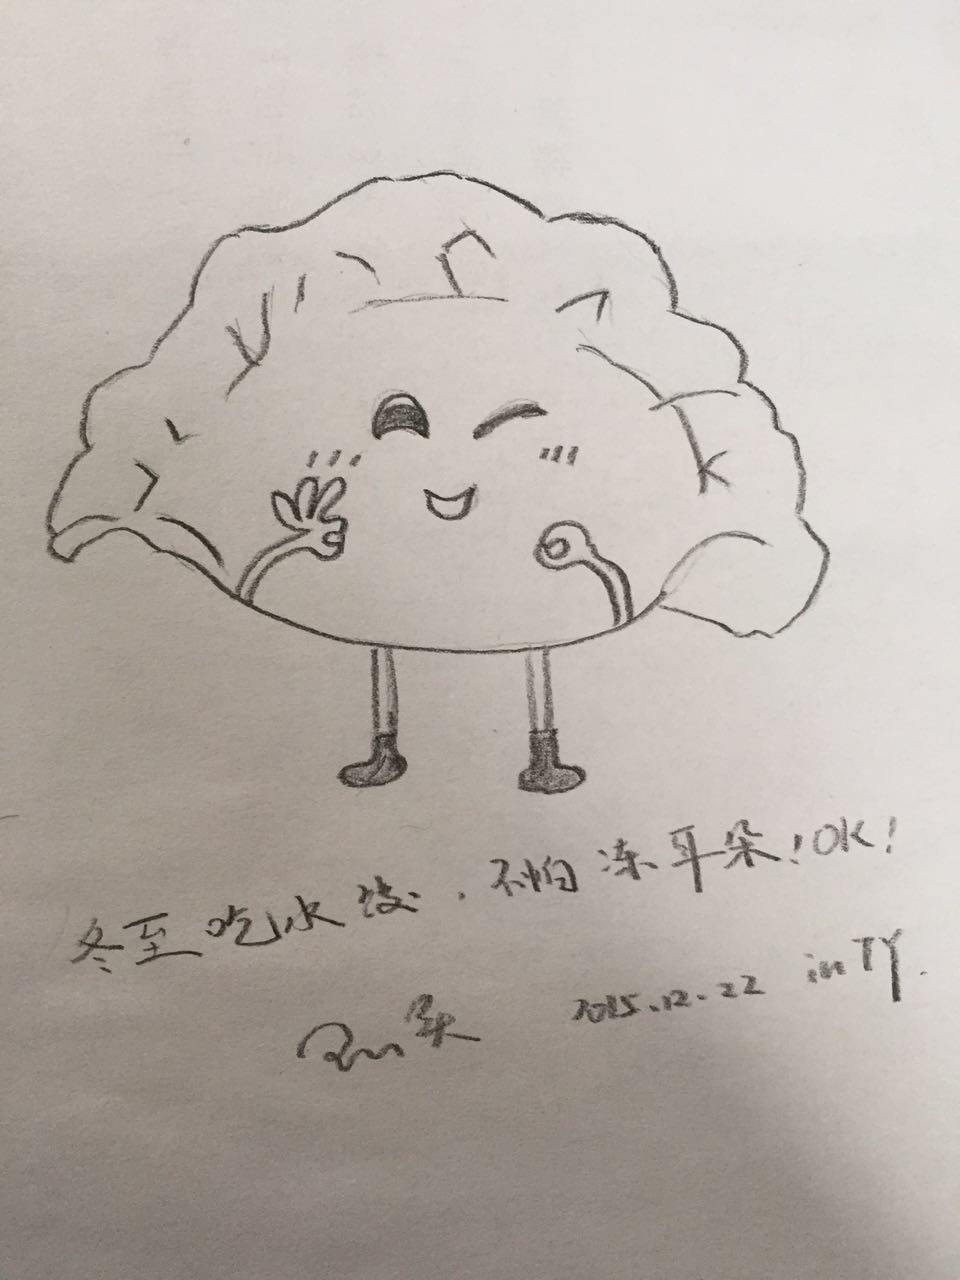 冬至吃水饺，不怕冻耳朵！OK！
2015.12.22 in TY.